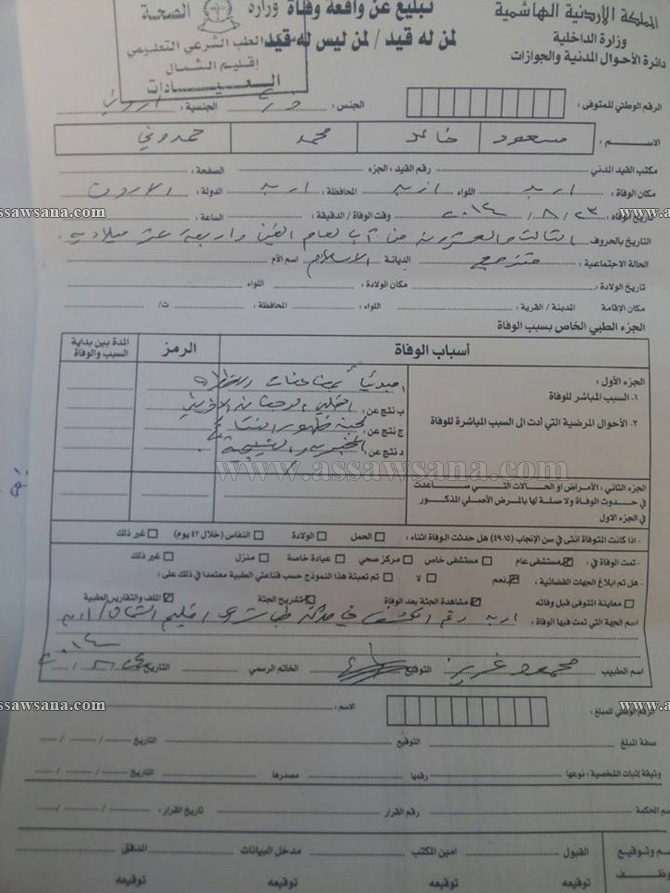 المملكة الأردنية الهاشمية
وزارة الداخلية
دائرة الأحوال المدنية والجوازات
تبليغ عن واقعة وفاة
لمن له قيد / لمن ليس له قيد
وزارة الصحة
الطب الشرعي التعليمي
إقليم الشمال
العيادات
الرقم الوطني للمتوفى : الجنس : ذكر الجنسية :
الاسم : مسعود خالد محمد حمدوني
مكتب القيد المدني رقم القيد : الجزء الصفحة :
مكان الوفاة : اربد اللواء اربد المحافظة : اربد الدولة : الاردن
تاريخ الوفاة ٢٣ / ٨ / ٢٠١٤ وقت الوفاة / الدقيقة : الساعة :
التاريخ بالحروف الثالث والعشرون من آب لعام الفين واربعة عشر ميلادية
الحالة الاجتماعية : الديانة الاسلام اسم الأم
تاريخ الولادة : مكان الولادة : اللواء
مكان الإقامة المدينة / القرية : اللواء : المحافظة : ت/
الجزء الطبي الخاص بسبب الوفاة
أسباب الوفاة الرمز المدة بين بداية السبب والوفاة
الجزء الأول :
١. السبب المباشر للوفاة أ
٢. الأحوال المرضية التي أدت الى السبب المباشرة للوفاة
ب نتج عن :
ج نتج عن : لحين ظهور النتائج
د نتج عن : المخبرية والنسيجية
الجزء الثاني : الأمراض او الحالات التي ساعدت
في حدوث الوفاة ولا صلة لها بالمرض الأصلي المذكور
في الجزء الاول
- اذا كانت المتوفاة انثى في سن الإنجاب (١٥-٤٩) هل حدثت الوفاة اثناء : الحمل الولادة النفاس (خلال ٤٢ يوم) غير ذلك
- تمت الوفاة في : مستشفى عام مستشفى خاص مركز صحي عيادة خاصة منزل غير ذلك
- هل تم ابلاغ الجهات القضائية : نعم لا تم تعبئة هذا النموذج حسب قناعتي الطبية معتمدا في ذلك على :
معاينة المتوفى قبل وفاته مشاهدة الجثة بعد الوفاة تشريح الجثة الملف والتقارير الطبية
اسم الجهة التي تمت فيها الوفاة : اربد
اسم الطبيب محمود التوقيع الخاتم الرسمي التاريخ
الرقم الوطني للمبلغ : الاسم :
صفة المبلغ التوقيع التاريخ --/--/----
وثيقة إثبات الشخصية : نوعها رقمها مصدرها التاريخ : --/--/----
اسم المحكمة رقم القرار : تاريخ القرار : --/--/----
القبول امين المكتب مدخل البيانات المدقق
توقيعه توقيعه توقيعه توقيعه
www.assawsana.com